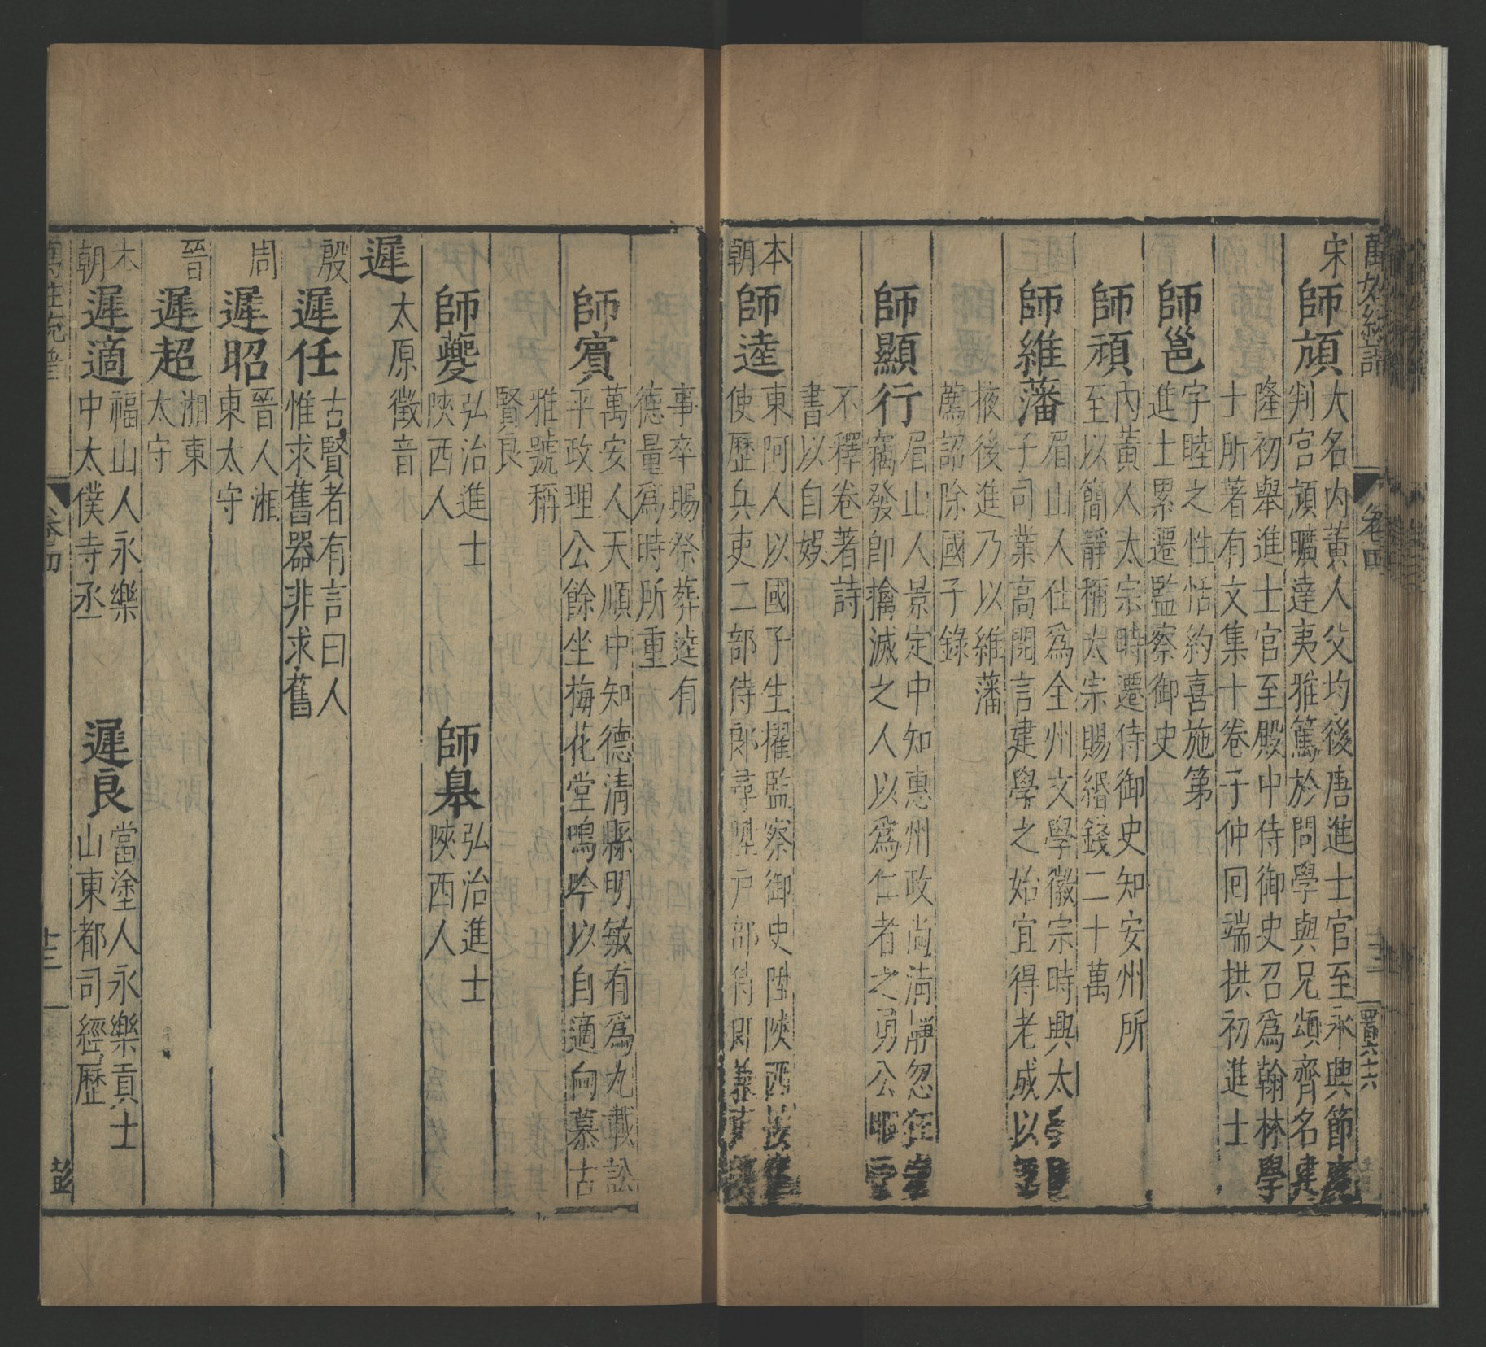 萬姓統譜 卷四 十三 四百六十六
宋 師頏 大名內黃人父均後唐進士官至永興節
判官頏曠達夷雅篤於問學與兄頌齊名建
隆初舉進士官至殿中侍御史召為翰林學
士所著有文集十卷子仲回端拱初進士
師邕 字睦之性恬約喜施第
進士累遷監察御史
師頑 內黃人太宗時遷侍御史知安州所
至以簡靜稱太宗賜緡錢二十萬
師維藩 眉山人仕為全州文學徽宗時與太
子司業高閌言建學之始宜得老成以
掖後進乃以維藩
薦詔除國子錄
師顯行 眉山人景定中知惠州政尚清靜忽狂
竊發即擒滅之人以為仁者之勇公
不釋卷著詩
書以自娛
本朝 師逵 東阿人以國子生擢監察御史陞陝西按
使歷兵吏二部侍郎尋陞戶部
事卒賜祭葬逵有
德量為時所重
師賓 萬安人天順中知德清縣明敏有為九載訟
平政理公餘坐梅花堂鳴吟以自適向慕古
雅號稱
賢良
師夔 弘治進士
陝西人
師皋 弘治進士
陝西人
遲 太原徵音
殷 遲任 古賢者有言曰人
惟求舊器非求舊
周 遲昭 晉人淮
東太守
晉 遲超 湘東
太守
本朝 遲適 福山人永樂
中太僕寺丞
遲良 當塗人永樂貢士
山東都司經歷
萬姓統譜 卷四 十三 彭